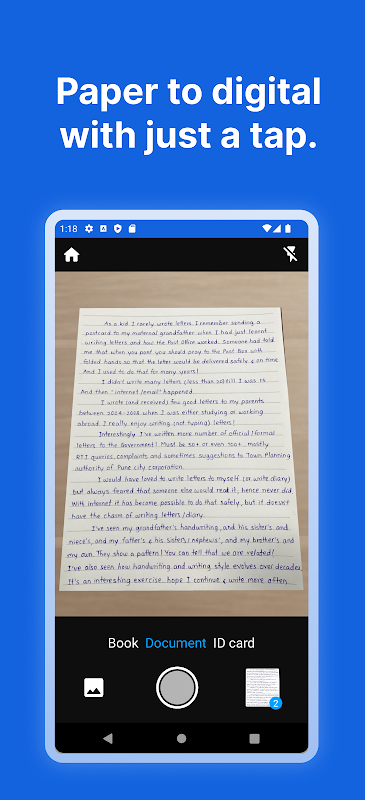 Paper to digital
with just a tap.
1:18
As a kid I rarely wrote letters. I remember sending a
postcard to my maternal grandfather when I had just learnt
writing letters and how the Post Office worked. Someone had told
me that when you post you should pray to the Post Box with
folded hands so that the letter would be delivered safely & on time.
And I used to do that for many years!
I didn't write many letters (less than 20) till I was 15.
And then "internet/email" happened.
I wrote (and received) few good letters to my parents
between 2004-2008 when I was either studying or working
abroad. I really enjoy writing (not typing) letters!
Interestingly I've written more number of official/formal
letters to the Government! Must be 50+ or even 100+, mostly
RTI queries, complaints and sometimes suggestions to Town Planning
authority of Pune city corporation.
I would have loved to write letters to myself (or write diary)
but always feared that someone else would read it, hence never did.
With internet it has become possible to do that safely, but it doesn't
have the charm of writing letters/diary.
I've seen my grandfather's handwriting, and his sister's and
niece's, and my father's & his sisters/nephews', and my brother's and
my own. They show a pattern! You can tell that we are related!
I've also seen how handwriting and writing style evolves over decades.
It's an interesting exercise. hope I continue & write more often.
Book Document ID card
2